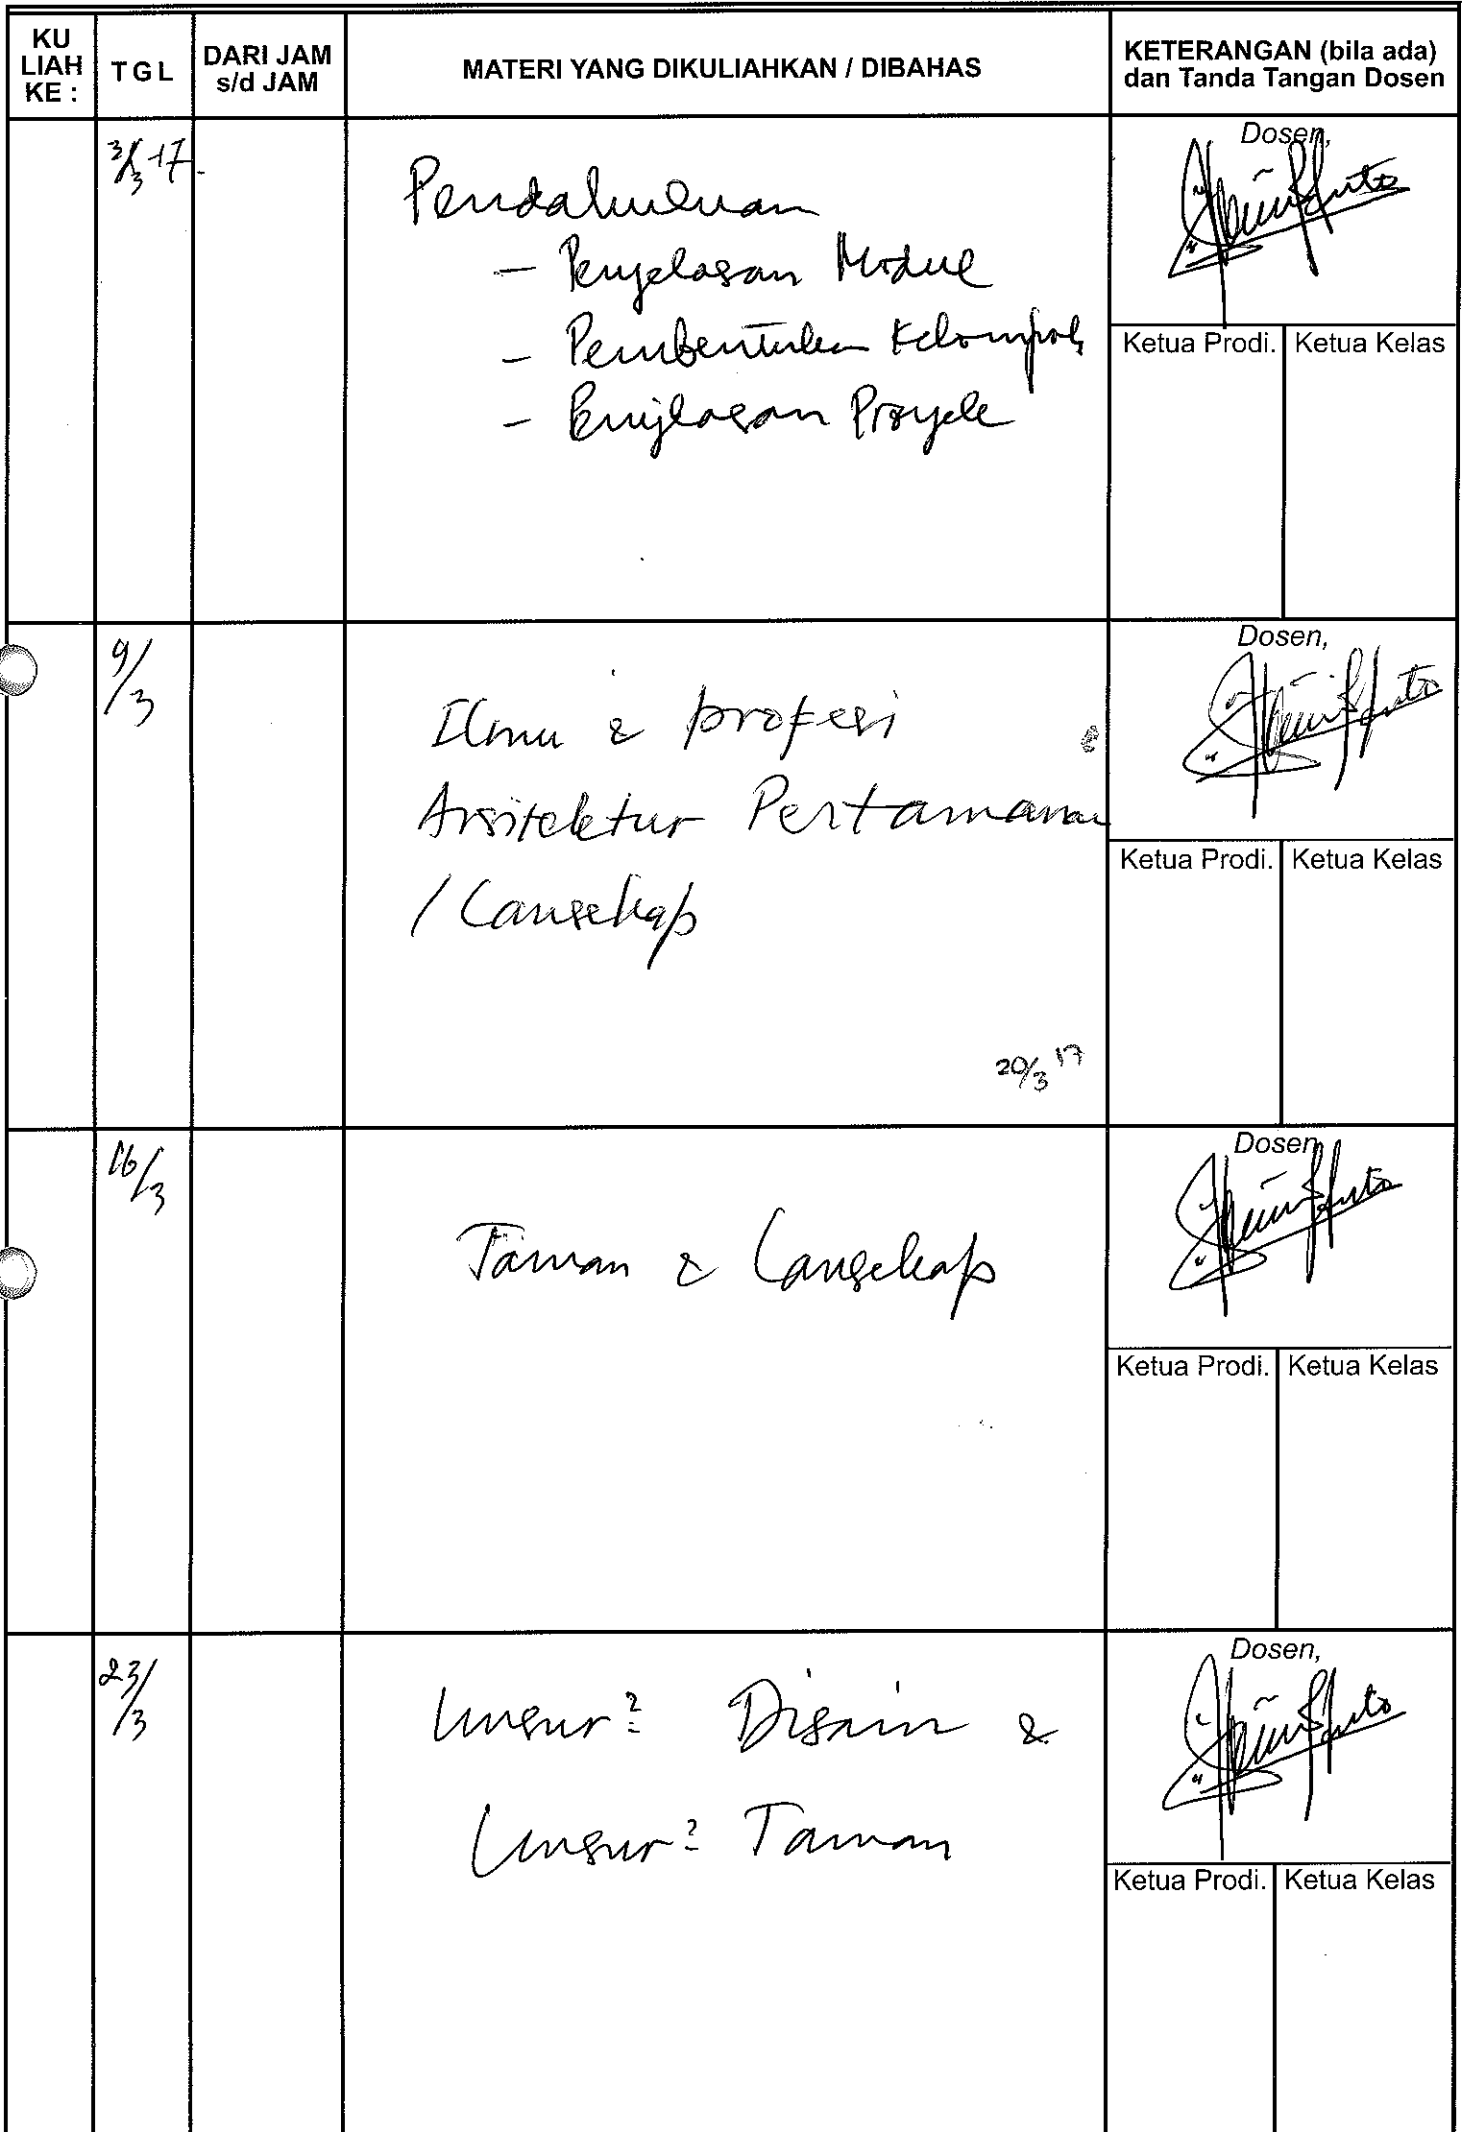 KU LIAH KE :
TGL
DARI JAM s/d JAM
MATERI YANG DIKULIAHKAN / DIBAHAS
KETERANGAN (bila ada) dan Tanda Tangan Dosen
3/3 17
Pendahuluan
- Penjelasan Modul
- Pembentukan Kelompok
- Penjelasan Proyek
Dosen,
Ketua Prodi. Ketua Kelas
9/3
Ilmu & profesi
Arsitektur Pertamanan
/ Lansekap
20/3 17
Dosen,
Ketua Prodi. Ketua Kelas
16/3
Taman & Langsekap
Dosen,
Ketua Prodi. Ketua Kelas
23/3
Unsur² Disain &
Unsur² Taman
Dosen,
Ketua Prodi. Ketua Kelas